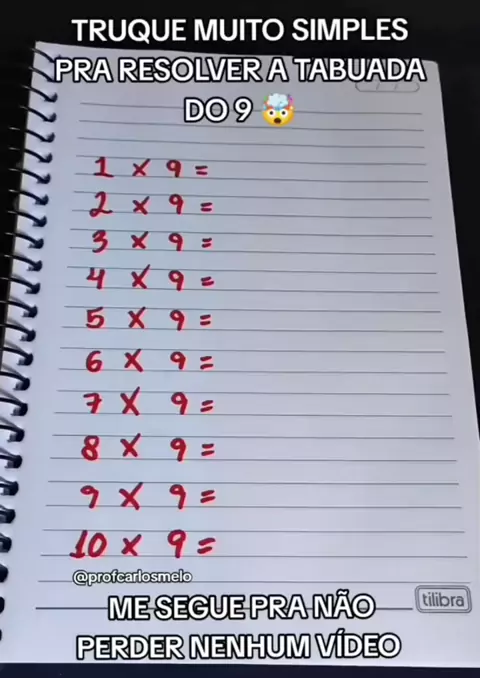 TRUQUE MUITO SIMPLES
PRA RESOLVER A TABUADA
DO 9 🤯
1 x 9 =
2 x 9 =
3 x 9 =
4 x 9 =
5 x 9 =
6 x 9 =
7 x 9 =
8 x 9 =
9 x 9 =
10 x 9 =
@profcarlosmelo
tilibra
ME SEGUE PRA NÃO
PERDER NENHUM VÍDEO